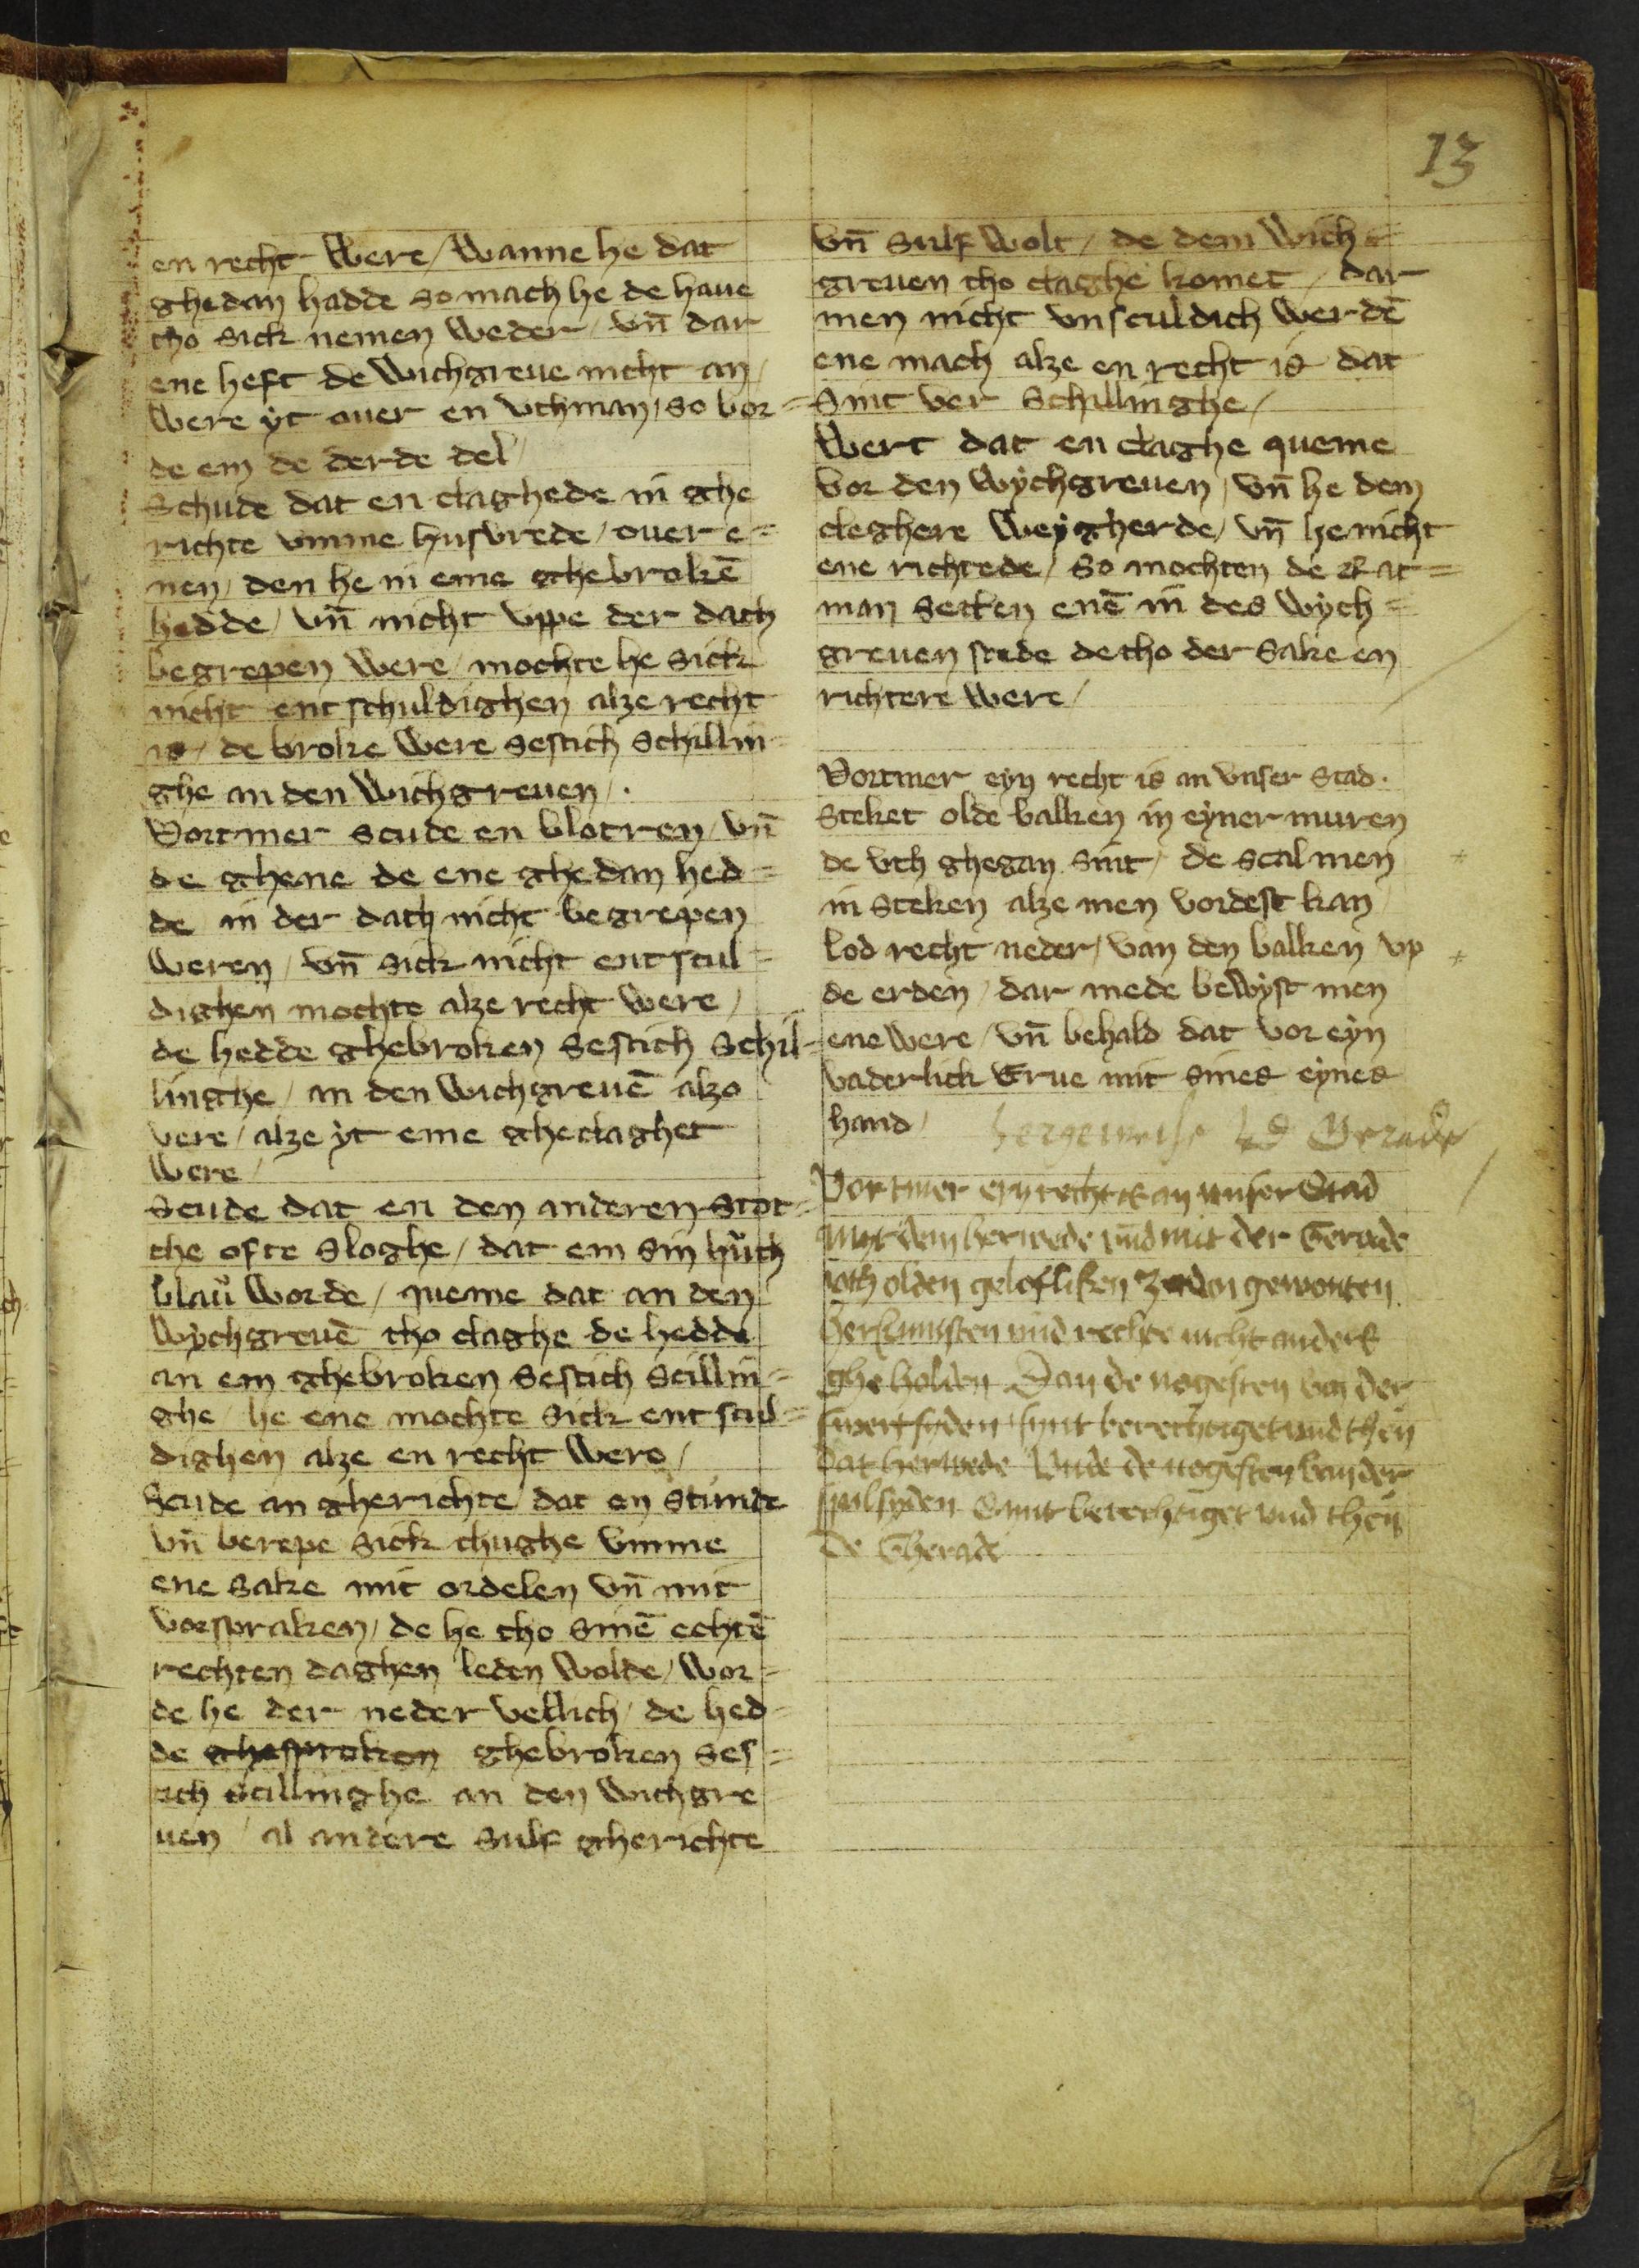 13
en recht were / wanne he dat
ghedan hadde so mach he de haue
tho sick nemen weder / vn̄ dar
ene heft de wichgreue nicht an /
were yt ouer en vthman / so bor=
de em de derde del /
Schude dat en claghede in ghe
richte vmme husvrede / ouer e=
nen / den he in eme ghebrokē
hedde / vn̄ nicht vppe der dath
begrepen were / mochte he sick
nicht entschuldighen alze recht
is / de broke were sestich schillin=
ghe an den wichgreuen / .
Vortmer scude en blotren / vn̄
de ghene de ene ghedan hed=
de in der dath nicht begrepen
weren / vn̄ sick nicht entscul=
dighen mochte alze recht were /
de hedde ghebroken sestich schil=
linghe / an den wichgreuē alzo
vere / alze yt eme gheclaghet
were /
Scude dat en den anderen stot=
the ofte sloghe / dat em sin hůth
blaů worde / queme dat an den
wychgreuē tho claghe de hedde
an em ghebroken sestich scillin=
ghe / he ene mochte sick entscul=
dighen alze en recht were /
Scude an gherichte dat en stunde
vn̄ berepe sick thughe vmme
ene sake mit ordelen vn̄ mit
vorspraken / de he tho sinē echtē
rechten daghen leden wolde / wor=
de he der neder vellich / de hed=
de ghesproken ghebroken ses=
tich scillinghe an den wichgre
uen / al andere sulf gherichte
vn̄ sulf wolt / de dem wich=
greuen tho claghe komet / dar
men nicht vnsculdich werdē
ene mach alze en recht is dat
sint ver schillinghe /
Wert dat en claghe queme
vor den wychgreuen / vn̄ he dem
cleghere weygherde / vn̄ he nicht
ene richtede / so mochten de Rat=
man setten enē in des wych=
greuen stede de tho der sake en
richtere were /
Vortmer eyn recht is an vnser stad.
steket olde balken in eyner muren
de vth ghegan sint / de scal men
in steken alze men vordest kan
lod recht neder / van den balken vp
de erden / dar mede bewyst men
ene were / vn̄ behald dat vor eyn
vaderlick erue mit sines eynes
hand /
Gerade
Vortmer eyn recht is an vnser Stad
Myt dem herwede vnd mit der Gerade
noth olden gelofliken zeden gewonten
herkumsten vnd rechte nicht anders
ghe holden Dan de negesten van der
swertsyden synt berechtiget vnd then
Dat herwede Vnde de negesten van der
spilsyden Synt berechtiget vnd then
De Gherade